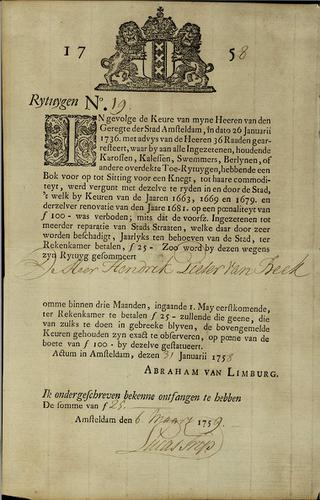 17 58
Rytuygen No. 19.
IN gevolge de Keure van myne Heeren van den
Geregte der Stad Amsteldam, in dato 26 Januarii
1736. met advys van de Heeren 36 Raaden gear-
resteert, waar by aan alle Ingezetenen, houdende
Karossen, Kalessen, Swemmers, Berlynen, of
andere overdekte Toe-Rytuygen, hebbende een
Bok voor op tot Sitting voor een Knegt, tot haare commodi-
teyt, werd vergunt met dezelve te ryden in en door de Stad,
't welk by Keuren van de Jaaren 1663, 1669 en 1679. en
derzelver renovatie van den Jaare 1681. op een pœnaliteyt van
f 100 - was verboden; mits dat de voorsz. Ingezetenen tot
meerder reparatie van Stads Straaten, welke daar door zeer
worden beschadigt, Jaarlyks ten behoeven van de Stad, ter
Rekenkamer betalen, f 25 - Zoo word by dezen wegens
zyn Rytuyg gesommeert
De Heer Hendrik Pieter van Beek
omme binnen drie Maanden, ingaande 1. May eerstkomende,
ter Rekenkamer te betalen f 25 - zullende die geene, die
van zulks te doen in gebreeke blyven, de bovengemelde
Keuren gehouden zyn exact te observeren, op pœne van de
boete van f 100 - by dezelve gestatueert.
Actum in Amsteldam, dezen 31 Januarii 1758
ABRAHAM VAN LIMBURG.
Ik ondergeschreven bekenne ontfangen te hebben
De somme van f 25
Amsteldam den 6 Maart 1759.